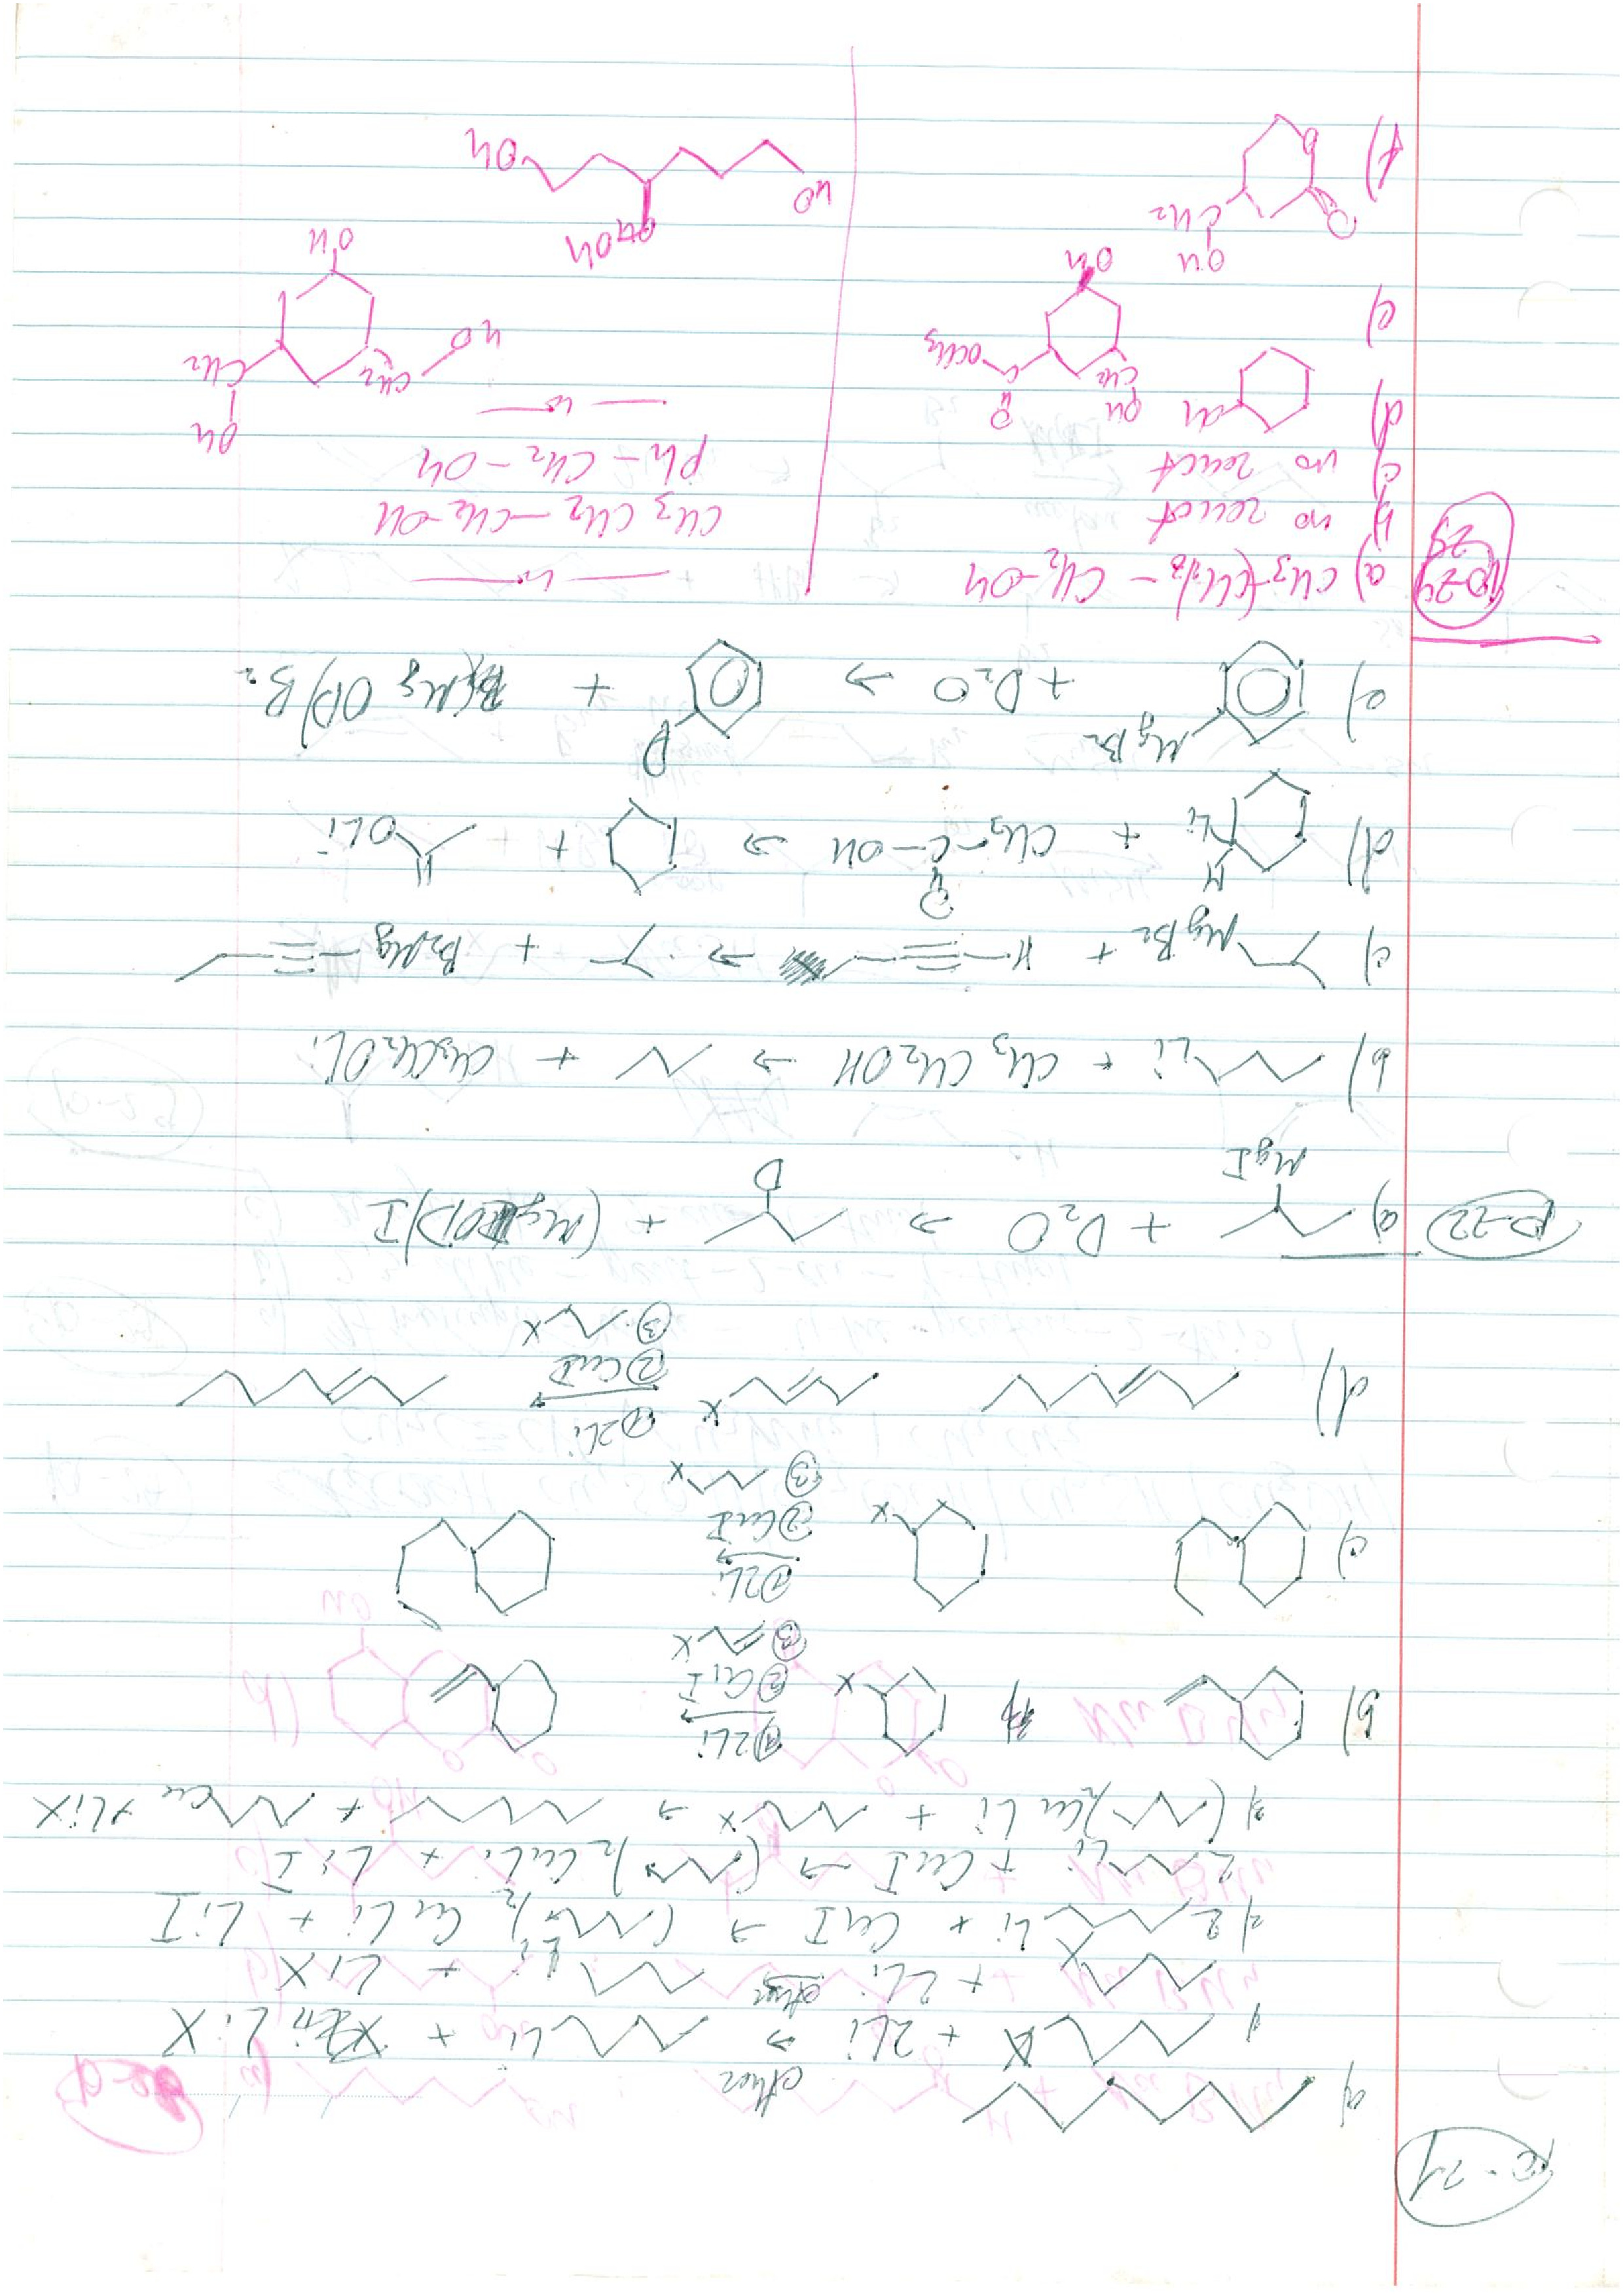 10-21
a)
1) X + 2Li → ether Li + LiX
X + 2Li → ether Li + LiX
2) 2 Li + CuI → ( )2 CuLi + LiI
2 Li + CuI → ( )2 CuLi + LiI
3) ( )2 CuLi + X → + Cu + LiX
b) X ① 2Li
② CuI
③ X
c) X ① 2Li
② CuI
③ X
d) X ① 2Li
② CuI
③ X
10-22 a) MgI + D2O → D + (MgOD)I
b) Li + CH3CH2OH → + CH3CH2OLi
c) MgBr + H-≡- → + BrMg-≡-
d) H Li + CH3-C-OH → + OLi
O
e) MgBr + D2O → D + (MgOD)Br
10-24
25
a) CH3-(CH2)8-CH2-OH — " —
b) no react CH3CH2-CH2-OH
c) no react Ph-CH2-OH
d) OH — " —
e) OH CH2 O C OCH3 OH OH CH2 CH2 OH OH
f) O O CH2 OH HO OH OH